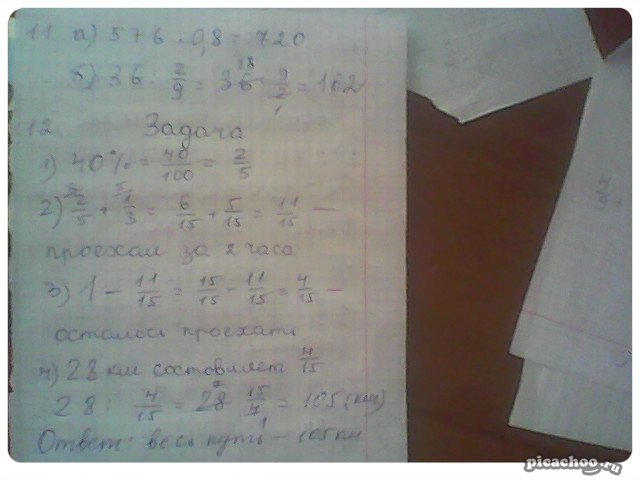 11 а) 576 : 0,8 = 720
б) 36 : 2/9 = 36 · 9/2 = 162
12. Задача
1) 40% = 40/100 = 2/5
2) 2/5 + 1/3 = 6/15 + 5/15 = 11/15 —
проехал за 2 часа
3) 1 - 11/15 = 15/15 - 11/15 = 4/15 —
осталось проехать
4) 28 км составляет 4/15
28 : 4/15 = 28 · 15/4 = 105 (км)
Ответ: весь путь - 105 км
picachoo.ru